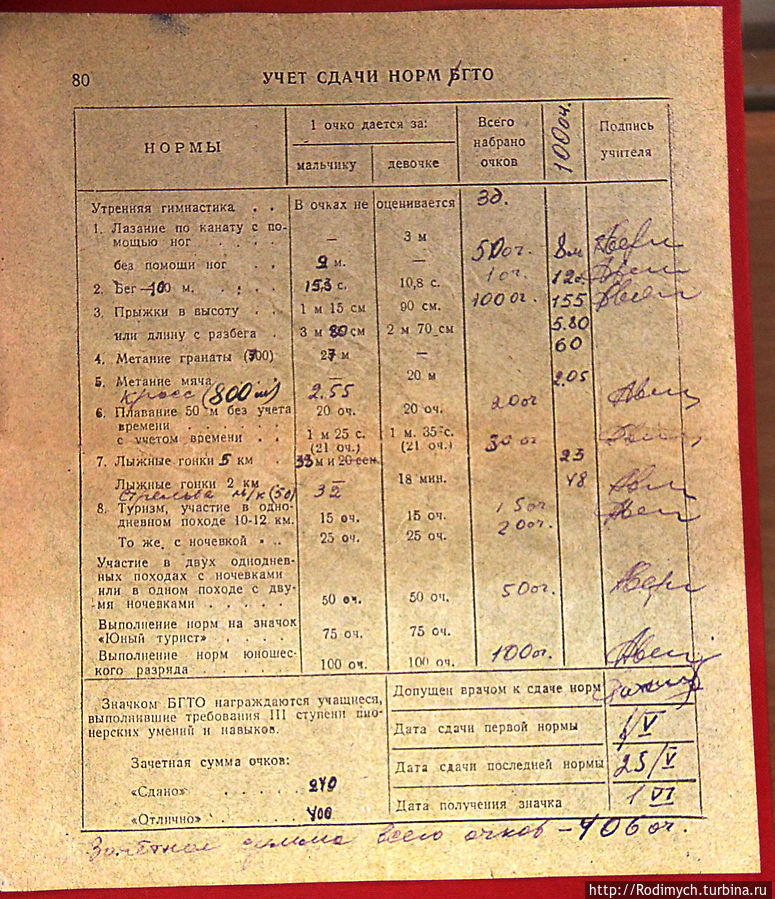 80
УЧЕТ СДАЧИ НОРМ БГТО
НОРМЫ
1 очко дается за:
мальчику
девочке
Всего набрано очков
100 оч.
Подпись учителя
Утренняя гимнастика . . В очках не оценивается зд.
1. Лазание по канату с по-
мощью ног . . . . — 3 м 50 оч. 8 м
без помощи ног . . 9 м. — 1 оч. 12
2. Бег 100 м. . . . . 15,3 с. 10,8 с. 100 оч. 155
3. Прыжки в высоту . . 1 м 15 см 90 см.
или длину с разбега . 3 м 80 см 2 м 70 см 5.80
4. Метание гранаты (700) 27 м — 60
5. Метание мяча — 20 м 2.05
Кросс (800 м) 2.55
6. Плавание 50 м без учета 20 оч. 20 оч. 20 оч
времени . . . . . . .
с учетом времени . . 1 м 25 с. 1 м. 35 с. 30 оч
(21 оч.) (21 оч.)
7. Лыжные гонки 5 км . . 33 м и 20 сек. — 23
Лыжные гонки 2 км . . — 18 мин. 48
Стрельба м/к (50) 32
8. Туризм, участие в одно-
дневном походе 10-12 км. 15 оч. 15 оч. 15 оч
То же, с ночевкой . . . 25 оч. 25 оч. 20 оч.
Участие в двух одноднев-
ных походах с ночевками
или в одном походе с дву-
мя ночевками . . . . . 50 оч. 50 оч. 50 оч.
Выполнение норм на значок
«Юный турист» . . . . 75 оч. 75 оч.
Выполнение норм юношес-
кого разряда . . . . . 100 оч. 100 оч. 100 оч.
Значком БГТО награждаются учащиеся,
выполнившие требования III ступени пио-
нерских умений и навыков.
Зачетная сумма очков:
«Сдано» . . . . . . . 270
«Отлично» . . . . . . 400
Допущен врачом к сдаче норм
Дата сдачи первой нормы 1/V
Дата сдачи последней нормы 25/V
Дата получения значка 1 VI
Зачётная сумма всего очков - 406 оч.
http://Rodimych.turbina.ru